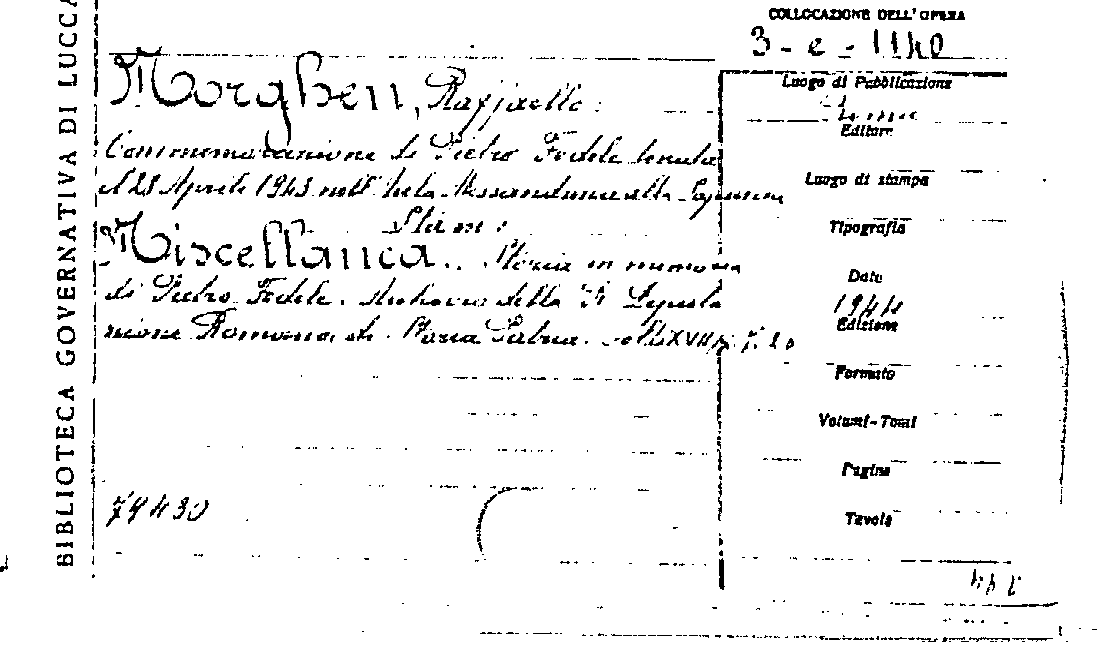 BIBLIOTECA GOVERNATIVA DI LUCCA
COLLOCAZIONE DELL'OPERA
3-e-1140
Morghen, Raffaello:
Commemorazione di Pietro Fedele tenuta
il 28 Aprile 1943 nell' Aula Alessandrina alla Sapienza
Stam:
Miscellanea. Storia in memoria
di Pietro Fedele. Archivio della R. Deputa
zione Romana di Storia Patria. vol. LXVII
Luogo di Pubblicazione
Roma
Editore
Luogo di stampa
Tipografia
Data
1944
Edizione
Formato
Volumi-Tomi
Pagine
Tavole
79430